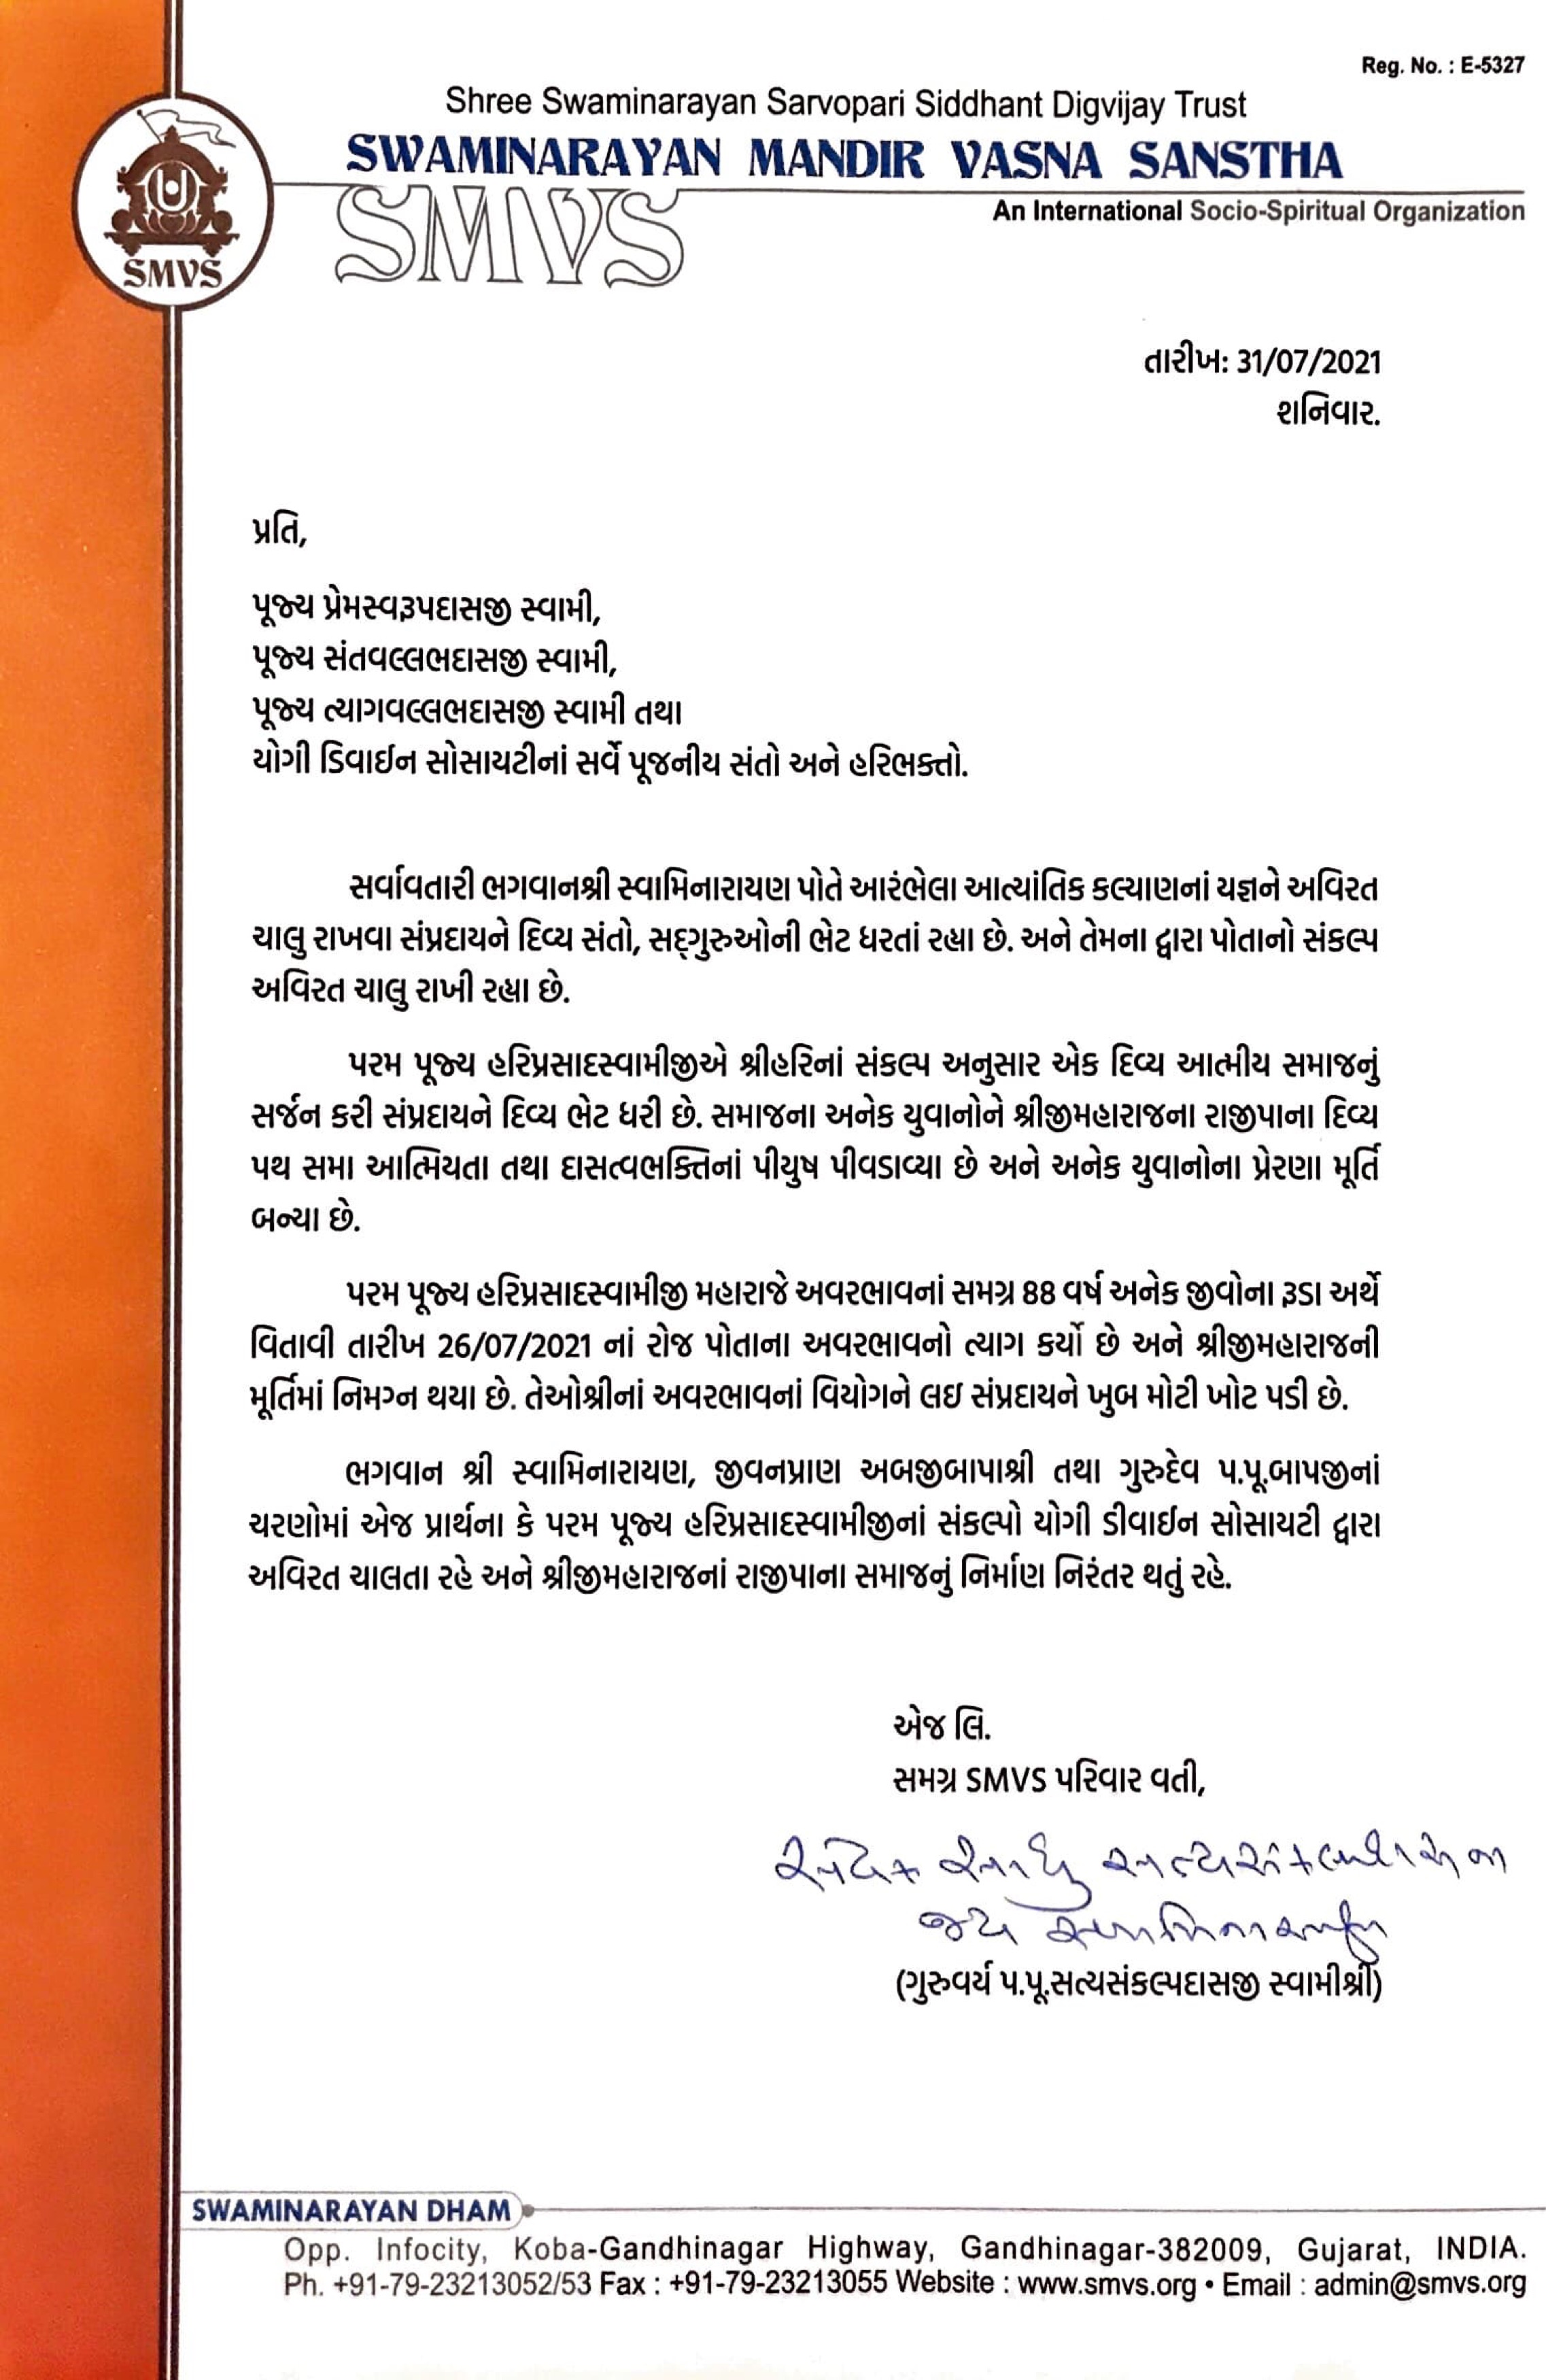 Reg. No. : E-5327
Shree Swaminarayan Sarvopari Siddhant Digvijay Trust
SWAMINARAYAN MANDIR VASNA SANSTHA
SMVS
An International Socio-Spiritual Organization
SMVS
તારીખ: 31/07/2021
શનિવાર.
પ્રતિ,
પૂજ્ય પ્રેમસ્વરૂપદાસજી સ્વામી,
પૂજ્ય સંતવલ્લભદાસજી સ્વામી,
પૂજ્ય ત્યાગવલ્લભદાસજી સ્વામી તથા
યોગી ડિવાઈન સોસાયટીનાં સર્વે પૂજનીય સંતો અને હરિભક્તો.
સર્વાવતારી ભગવાનશ્રી સ્વામિનારાયણ પોતે આરંભેલા આત્યાંતિક કલ્યાણનાં યજ્ઞને અવિરત
ચાલુ રાખવા સંપ્રદાયને દિવ્ય સંતો, સદ્ગુરુઓની ભેટ ધરતાં રહ્યા છે. અને તેમના દ્વારા પોતાનો સંકલ્પ
અવિરત ચાલુ રાખી રહ્યા છે.
પરમ પૂજ્ય હરિપ્રસાદસ્વામીજીએ શ્રીહરિનાં સંકલ્પ અનુસાર એક દિવ્ય આત્મીય સમાજનું
સર્જન કરી સંપ્રદાયને દિવ્ય ભેટ ધરી છે. સમાજના અનેક યુવાનોને શ્રીજીમહારાજના રાજીપાના દિવ્ય
પથ સમા આત્મિયતા તથા દાસત્વભક્તિનાં પીયુષ પીવડાવ્યા છે અને અનેક યુવાનોના પ્રેરણા મૂર્તિ
બન્યા છે.
પરમ પૂજ્ય હરિપ્રસાદસ્વામીજી મહારાજે અવરભાવનાં સમગ્ર 88 વર્ષ અનેક જીવોના રૂડા અર્થે
વિતાવી તારીખ 26/07/2021 નાં રોજ પોતાના અવરભાવનો ત્યાગ કર્યો છે અને શ્રીજીમહારાજની
મૂર્તિમાં નિમગ્ન થયા છે. તેઓશ્રીનાં અવરભાવનાં વિયોગને લઇ સંપ્રદાયને ખુબ મોટી ખોટ પડી છે.
ભગવાન શ્રી સ્વામિનારાયણ, જીવનપ્રાણ અબજીબાપાશ્રી તથા ગુરુદેવ પ.પૂ.બાપજીનાં
ચરણોમાં એજ પ્રાર્થના કે પરમ પૂજ્ય હરિપ્રસાદસ્વામીજીનાં સંકલ્પો યોગી ડીવાઈન સોસાયટી દ્વારા
અવિરત ચાલતા રહે અને શ્રીજીમહારાજનાં રાજીપાના સમાજનું નિર્માણ નિરંતર થતું રહે.
એજ લિ.
સમગ્ર SMVS પરિવાર વતી,
જય સ્વામિનારાયણ
(ગુરુવર્ય પ.પૂ.સત્યસંકલ્પદાસજી સ્વામીશ્રી)
SWAMINARAYAN DHAM
Opp. Infocity, Koba-Gandhinagar Highway, Gandhinagar-382009, Gujarat, INDIA.
Ph. +91-79-23213052/53 Fax : +91-79-23213055 Website : www.smvs.org • Email : admin@smvs.org